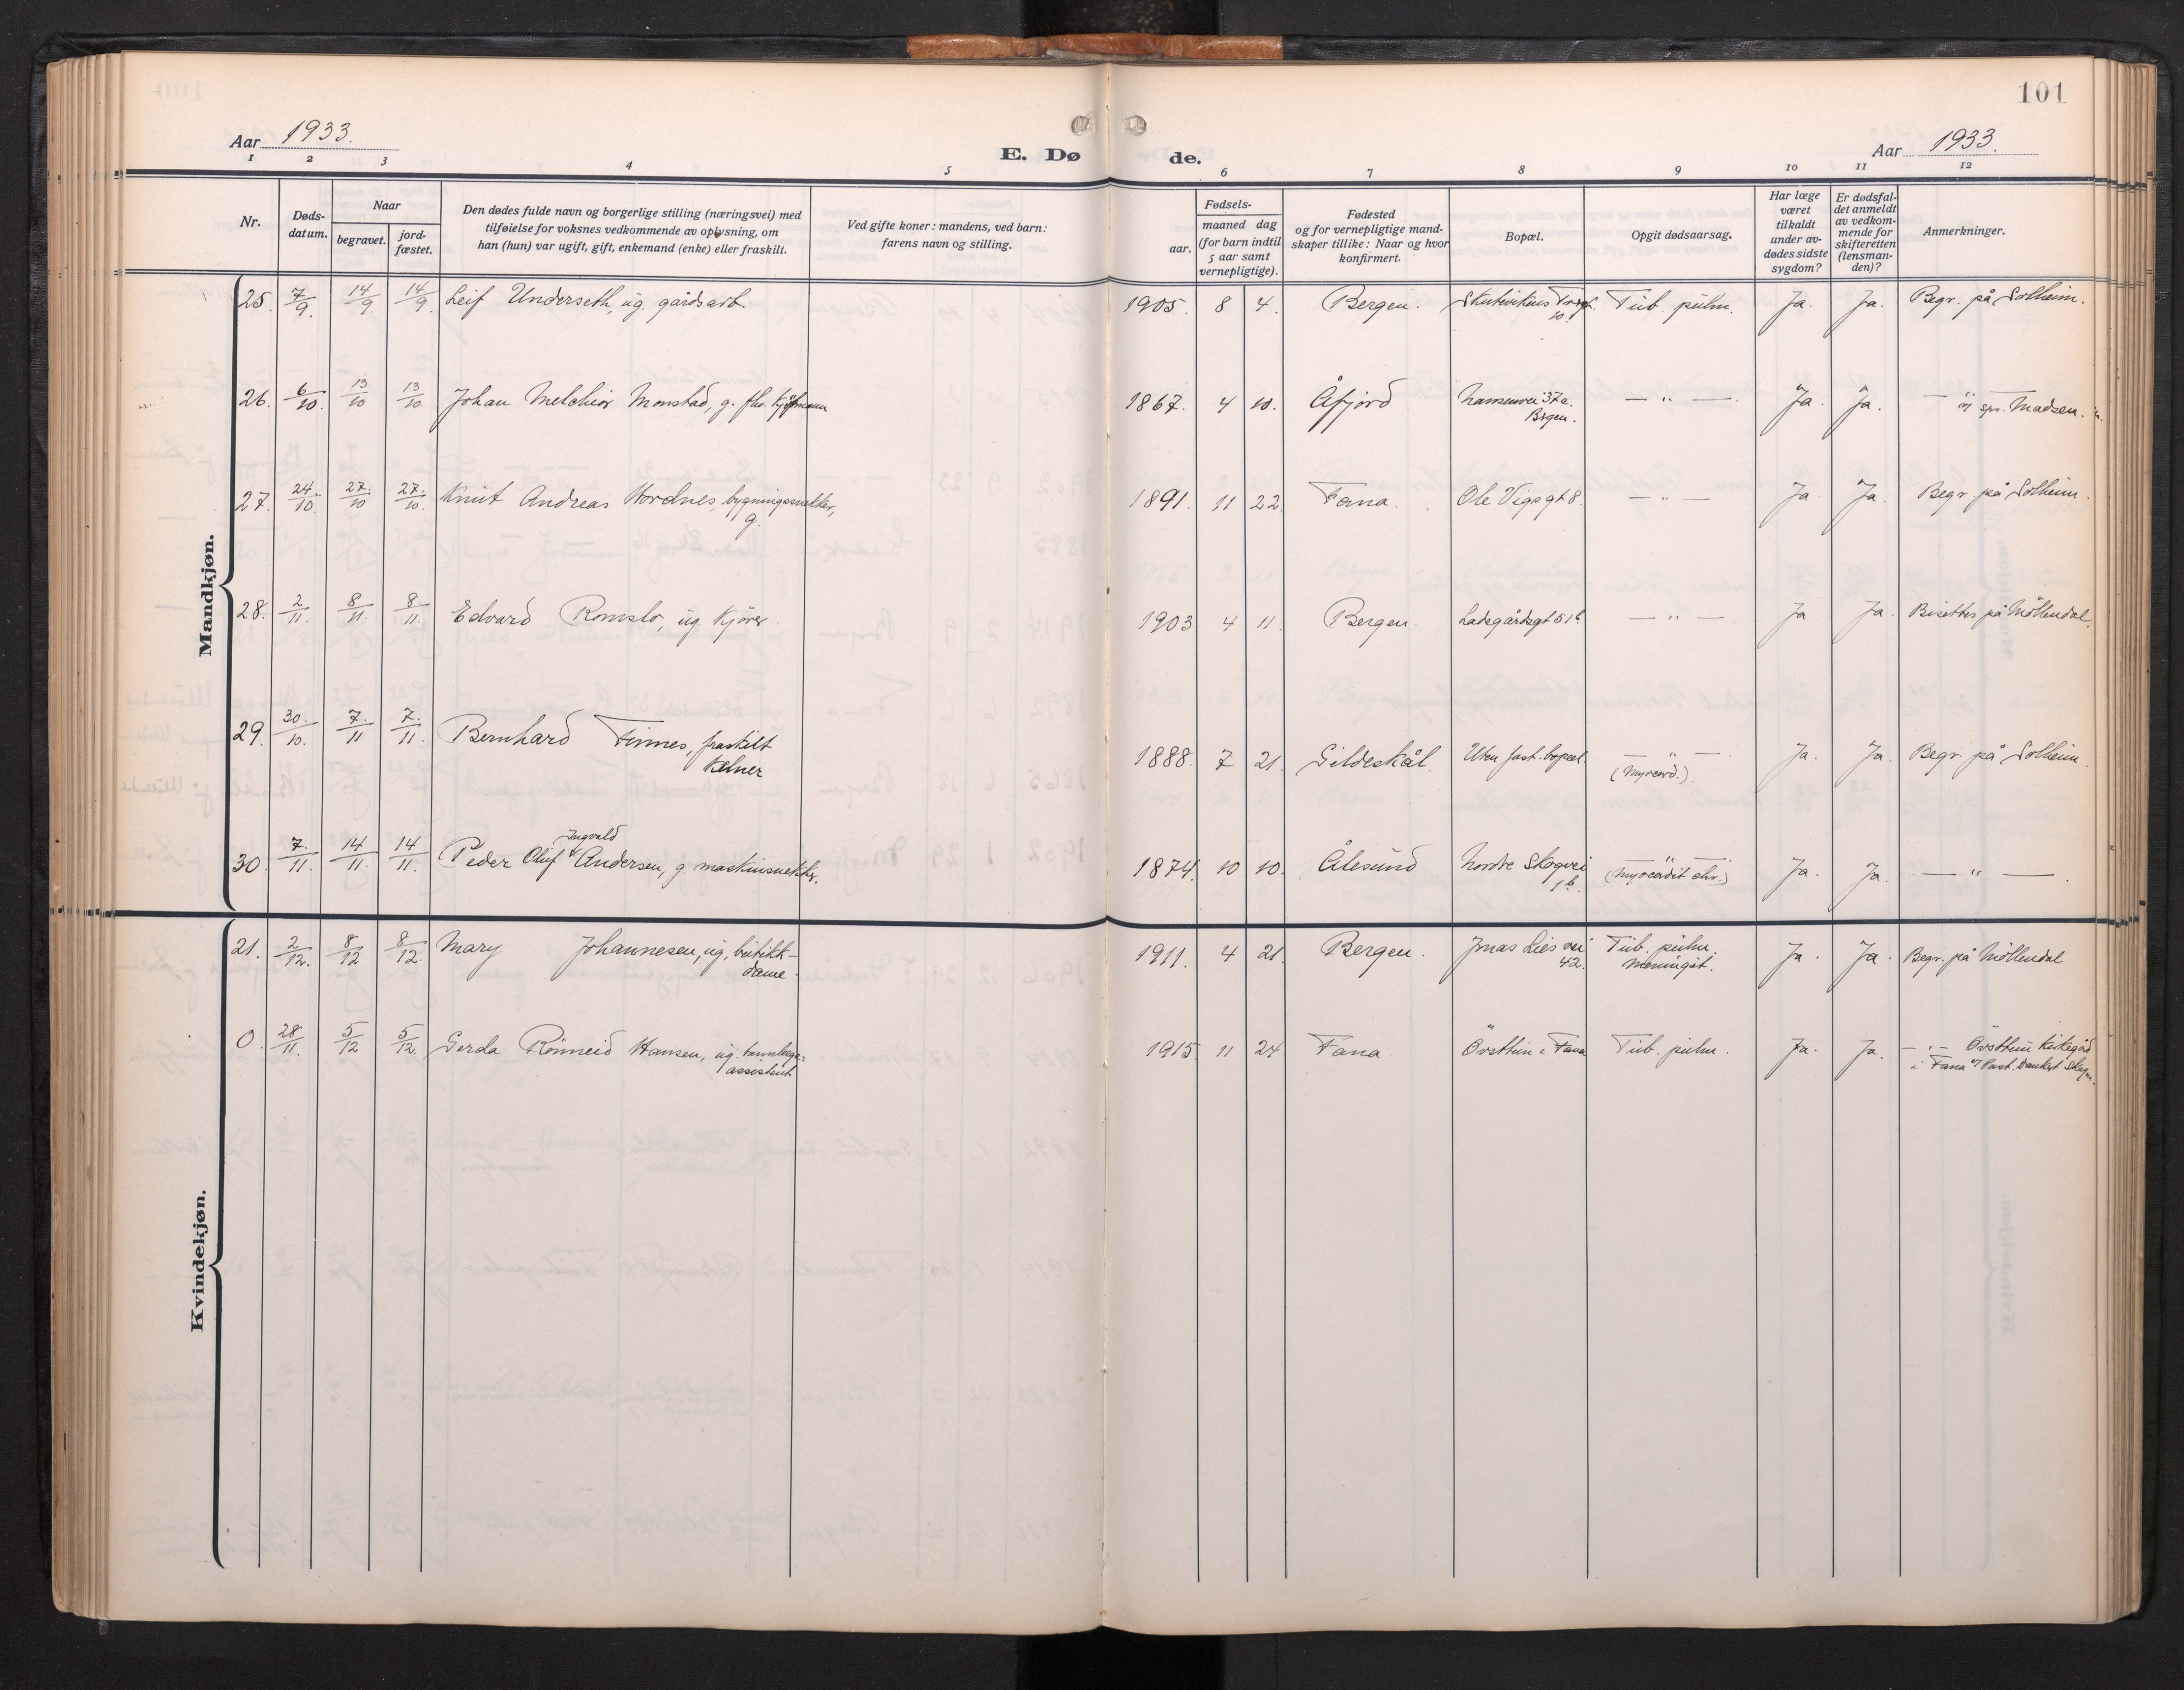 101
Aar 1933.
E. Dø de.
Aar 1933.
1 2 3 4 5 6 7 8 9 10 11 12
Nr.
Døds-
datum.
Naar
begravet.
jord-
fæstet.
Den dødes fulde navn og borgerlige stilling (næringsvei) med
tilføielse for voksnes vedkommende av oplysning, om
han (hun) var ugift, gift, enkemand (enke) eller fraskilt.
Ved gifte koner: mandens, ved barn:
farens navn og stilling.
Fødsels-
aar.
maaned dag
(for barn indtil
5 aar samt
vernepligtige).
Fødested
og for vernepligtige mand-
skaper tillike: Naar og hvor
konfirmert.
Bopæl.
Opgit dødsaarsag.
Har læge
været
tilkaldt
under av-
dødes sidste
sygdom?
Er dødsfal-
det anmeldt
av vedkom-
mende for
skifteretten
(lensman-
den)?
Anmerkninger.
Mandkjøn.
25. 7/9. 14/9 14/9 Leif Underseth, ug. gårdsarb. 1905. 8 4. Bergen. Skutevikens Torgt. Tub. pulm. Ja. Ja. Begr. på Solheim.
10.
26. 6/10. 13/10 13/10 Johan Melchior Monstad, g. fhv. kjøbmann 1867. 4 10. Åfjord Nansenvei 37a. — " — Ja. Ja. — "
Bergen. av spr. Madsen.
27. 24/10. 27/10 27/10. Knut Andreas Hordnes, bygningssnekker, 1891. 11 22. Fana. Ole Vigsgt 8. — " — Ja. Ja. Begr. på Solheim.
g.
28. 2/11. 8/11. 8/11. Edvard Romslo, ug. kjører. 1903 4 11. Bergen. Ladegårdsgt 51b — " — Ja Ja. Bisettes på Möllendal.
29. 30/10. 7/11 7/11. Bernhard Finnes, fraskilt 1888. 7 21. Gildeskål. Uten fast bopæl. — " — Ja. Ja. Begr. på Solheim.
kelner (myocard.).
30. 7/11. 14/11. 14/11. Peder Oluf Ingvald Andersen, g. maskinsnekker. 1874. 10 10. Ålesund Nordre Skogvei — " — Ja. Ja. — " —.
1b. (myocardit chr.)
Kvindekjøn.
21. 2/12. 8/12 8/12. Mary Johannesen, ug. butikk- 1911. 4 21. Bergen. Jonas Lies vei Tub. pulm. Ja. Ja. Begr. på Möllendal
dame. 42. meningit.
0. 28/11. 5/12 5/12. Gerda Rönneid Hansen, ug. tannlæge- 1915. 11 24 Fana. Övsttun i Fana Tub. pulm. Ja. Ja. — " — Övsttun kirkegård
assistent i Fana av Past. Danket Skagen.